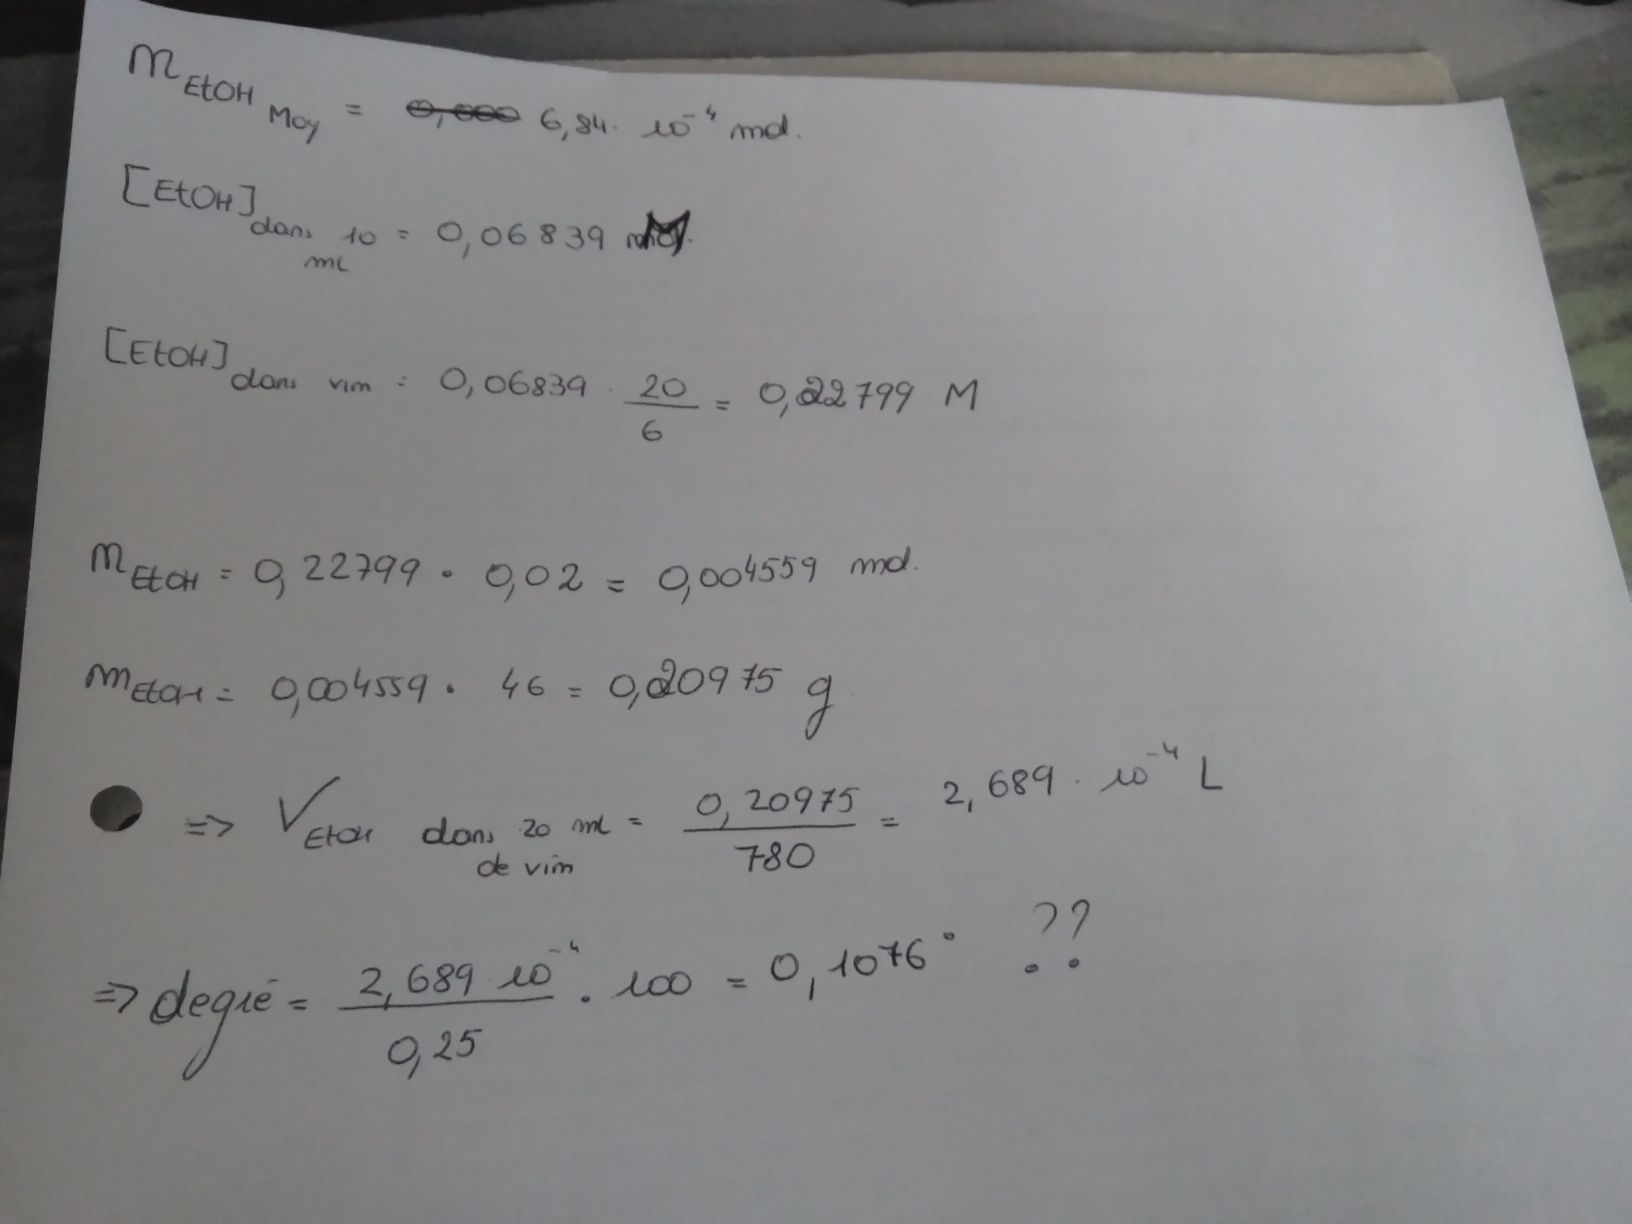 n EtOH Moy = 0,000 6,84 · 10⁻⁴ mol.
[EtOH] dans 10 mL = 0,06839 M
[EtOH] dans vin = 0,06839 · 20/6 = 0,22799 M
n EtOH = 0,22799 · 0,02 = 0,004559 mol.
m EtOH = 0,004559 · 46 = 0,20975 g
=> V EtOH dans 20 mL de vin = 0,20975/780 = 2,689 · 10⁻⁴ L
=> degré = 2,689 · 10⁻⁴/0,25 · 100 = 0,1076° ??